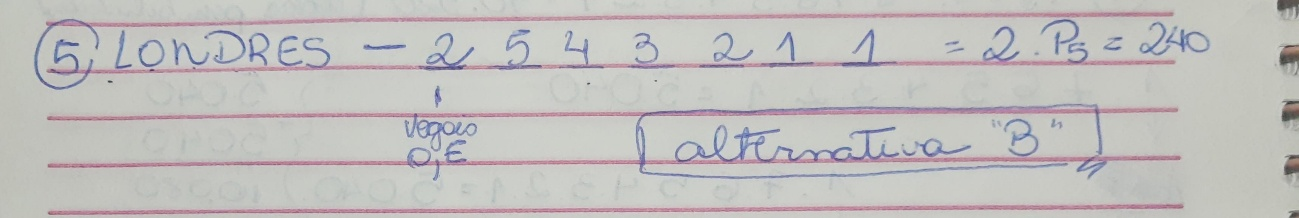 5) LONDRES - 2 5 4 3 2 1 1 = 2.P5 = 240
Vogais
O, E
alternativa "B"